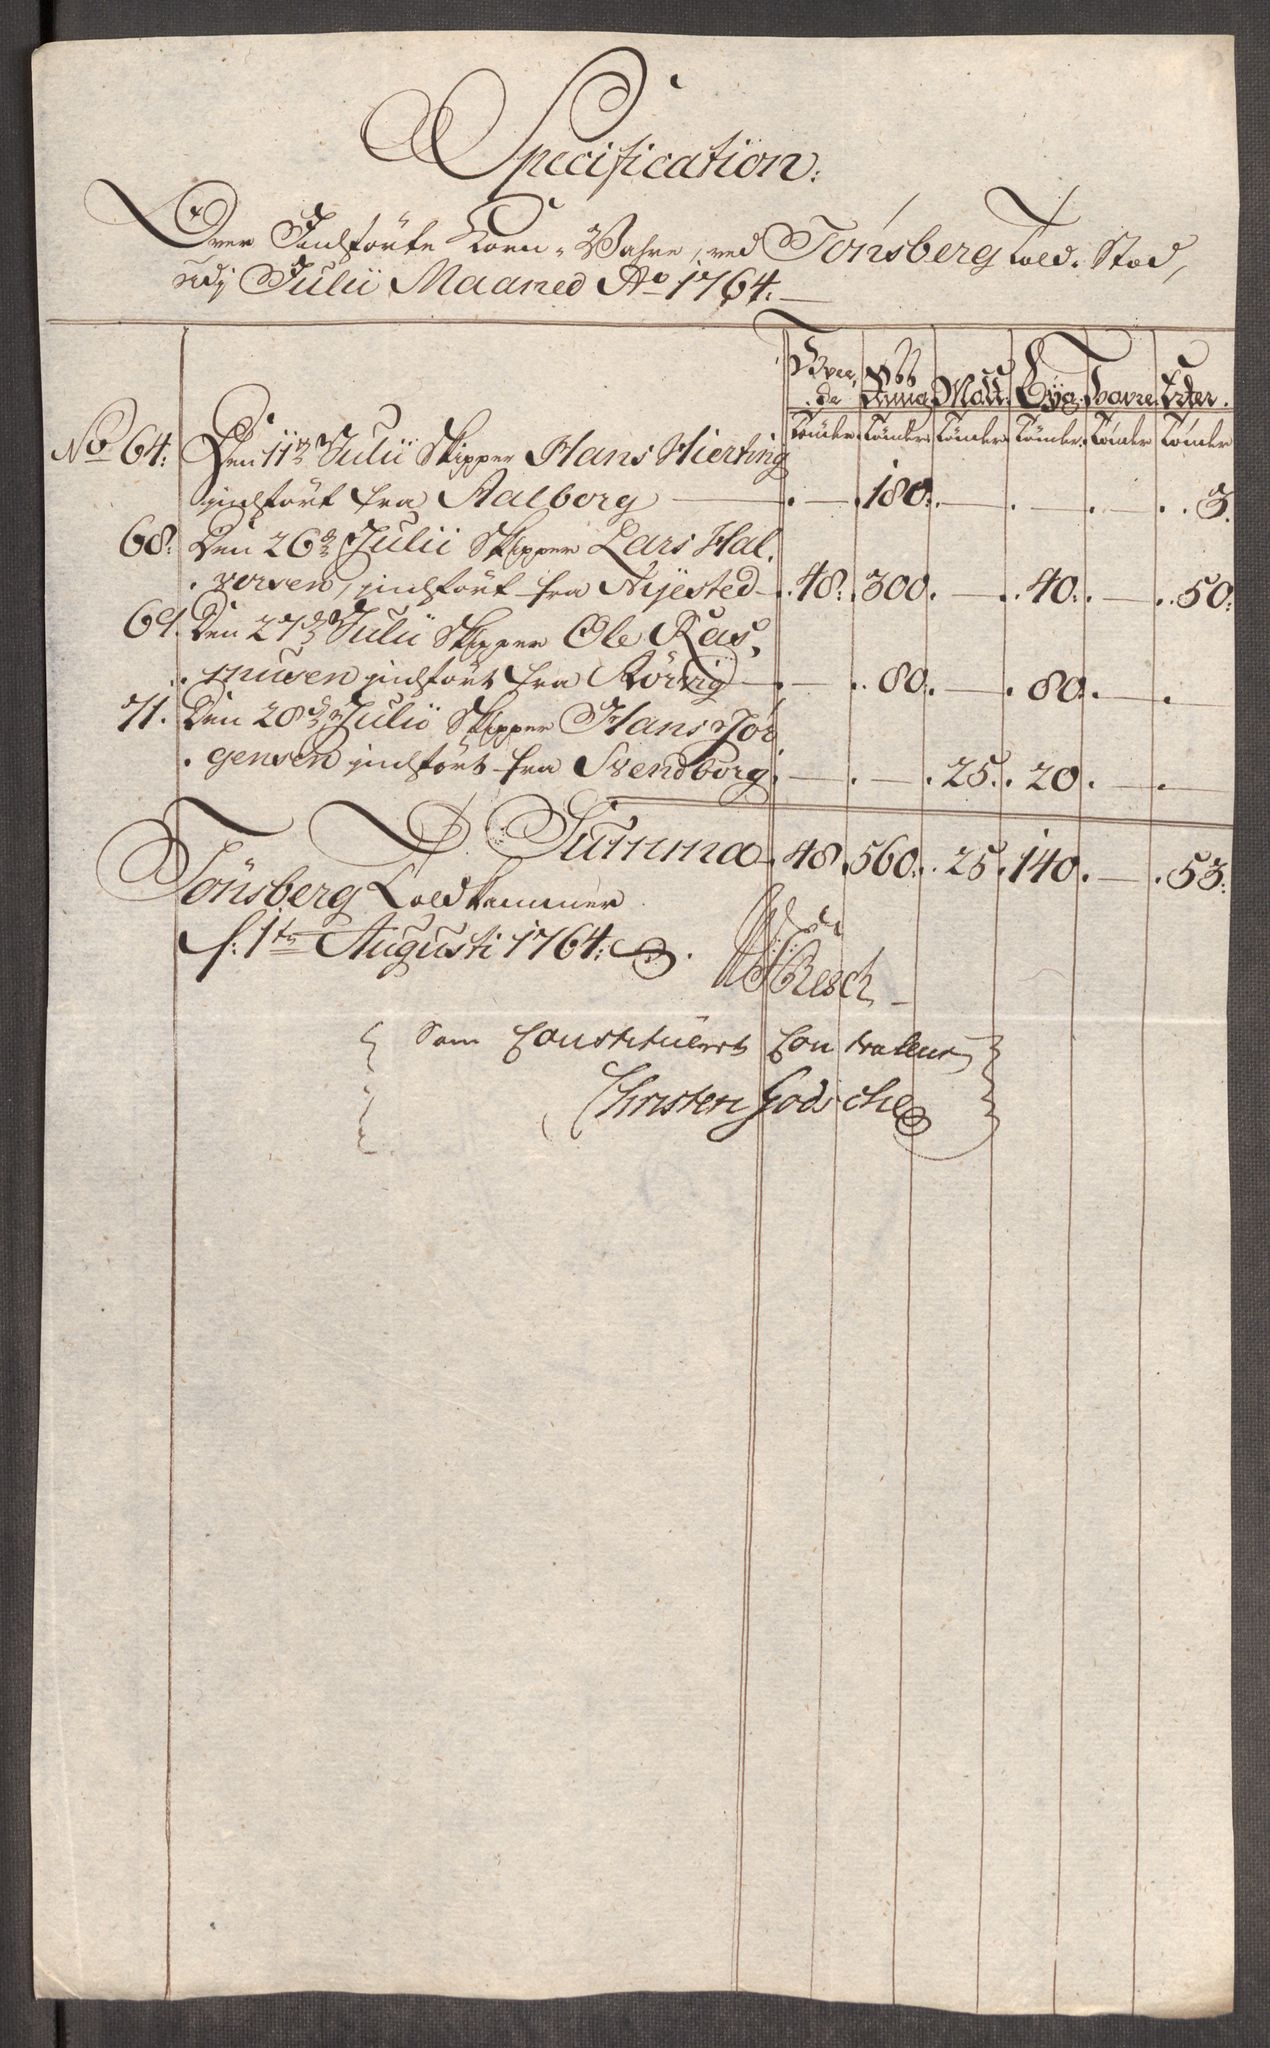 Specification:
Over Indförte Korn-Vahre, ved Tönsberg Told-Stæd,
udj Julii Maaned Ao 1764:
Hvee,
de Rug Malt. Byg. Havre. Erter.
Tönder. Tönder. Tönder. Tönder. Tönder Tönder
No 64: Den 11de Julii Skipper Hans Hierting
indfört fra Aalborg — . — . 180. — . — . — . 3.
68. Den 26de Julii Skipper Lars Hal,
versen, indfört fra Nyested . 48. 300. — . 40. — . 50.
69. Den 27de Julii Skipper Ole Ras,
musen indfört fra Rörvig . — . 80. — . 80. — . —
71. Den 28de Julii Skipper Hans Jör
gensen indfört fra Svendborg . — . — . 25. 20. — . —
Summa . 48. 560. 25. 140. — . 53.
Tönsberg Toldkammer
d: 1te Augusti 1764.
Resch
Som Constitueret Controleur
Christen Godsche